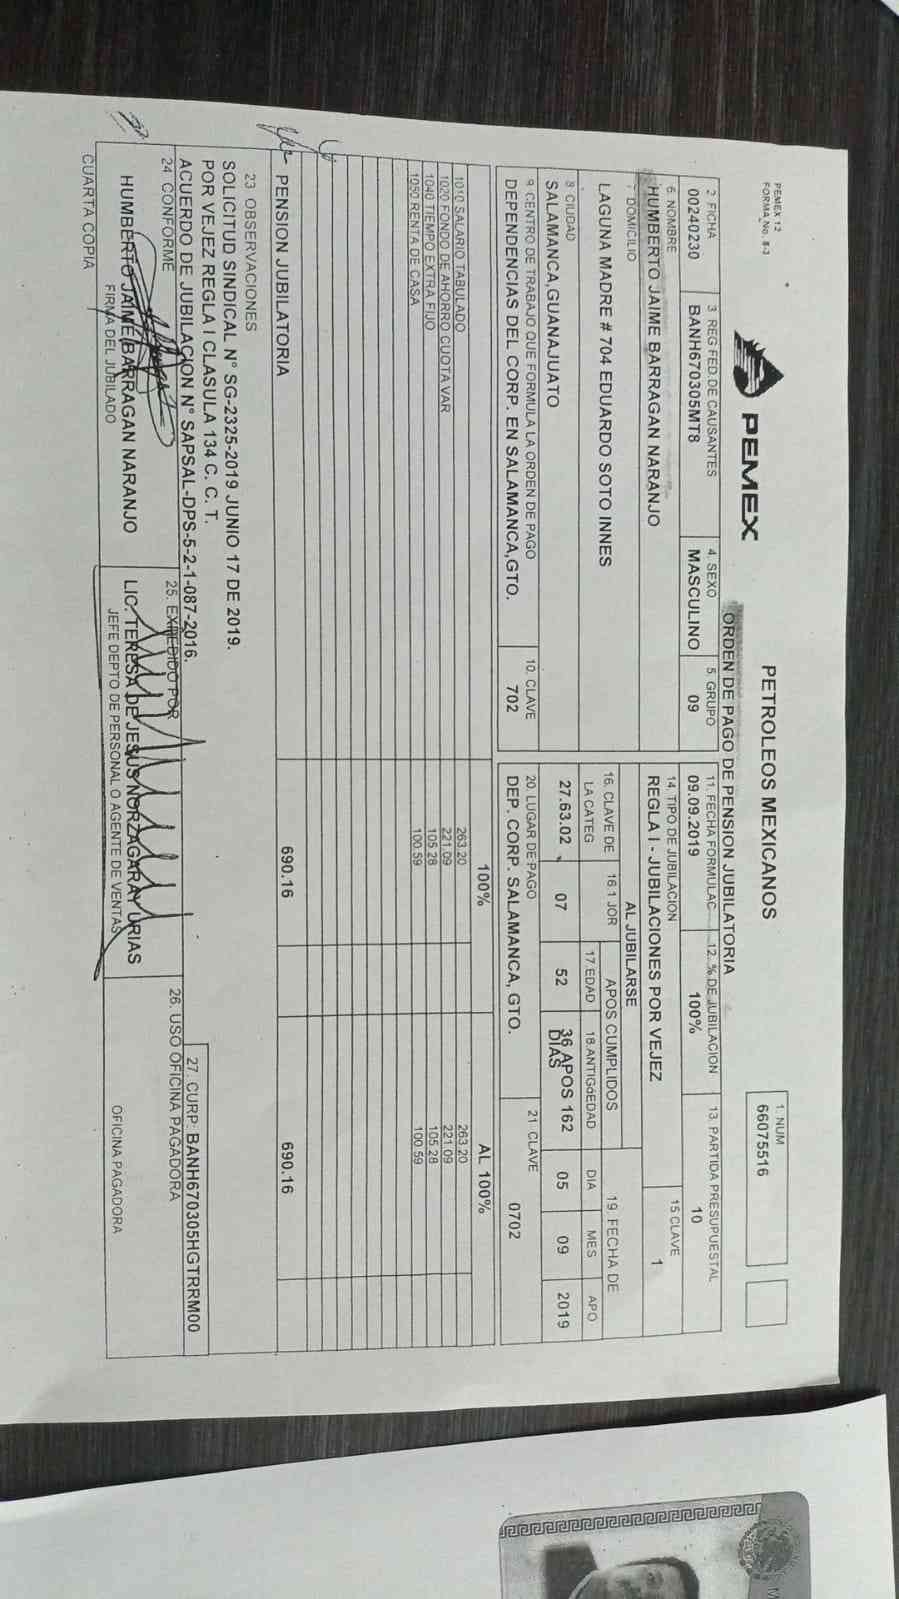 PEMEX 12
FORMA No. 8-3
PEMEX
PETROLEOS MEXICANOS
ORDEN DE PAGO DE PENSION JUBILATORIA
1. NUM
66075516
2. FICHA
00240230
3. REG FED.DE CAUSANTES
BANH670305MT8
4. SEXO
MASCULINO
5. GRUPO
09
6. NOMBRE
HUMBERTO JAIME BARRAGAN NARANJO
7 DOMICILIO
LAGUNA MADRE # 704 EDUARDO SOTO INNES
8 CIUDAD
SALAMANCA,GUANAJUATO
9. CENTRO DE TRABAJO QUE FORMULA LA ORDEN DE PAGO
DEPENDENCIAS DEL CORP. EN SALAMANCA,GTO.
10. CLAVE
702
11. FECHA FORMULAC
09.09.2019
12. % DE JUBILACION
100%
13. PARTIDA PRESUPUESTAL
10
14. TIPO DE JUBILACION
REGLA I - JUBILACIONES POR VEJEZ
15 CLAVE
1
AL JUBILARSE
16. CLAVE DE
LA CATEG
27.63.02
16.1 JOR
07
APOS CUMPLIDOS
17.EDAD
52
18.ANTIGóEDAD
36 APOS 162
DIAS
19. FECHA DE
DIA MES APO
05 09 2019
20. LUGAR DE PAGO
DEP. CORP. SALAMANCA, GTO.
21 CLAVE
0702
100% AL 100%
1010 SALARIO TABULADO 263.20 263.20
1020 FONDO DE AHORRO CUOTA VAR 221.09 221.09
1040 TIEMPO EXTRA FIJO 105.28 105.28
1050 RENTA DE CASA 100.59 100.59
PENSION JUBILATORIA 690.16 690.16
23 OBSERVACIONES
SOLICITUD SINDICAL N° SG-2325-2019 JUNIO 17 DE 2019.
POR VEJEZ REGLA I CLASULA 134 C. C. T.
ACUERDO DE JUBILACION N° SAPSAL-DPS-5-2-1-087-2016.
27. CURP: BANH670305HGTRRM00
24. CONFORME
HUMBERTO JAIME BARRAGAN NARANJO
FIRMA DEL JUBILADO
25. EXPEDIDO POR
LIC. TERESA DE JESUS NORZAGARAY URIAS
JEFE DEPTO DE PERSONAL O AGENTE DE VENTAS
26. USO OFICINA PAGADORA
OFICINA PAGADORA
CUARTA COPIA